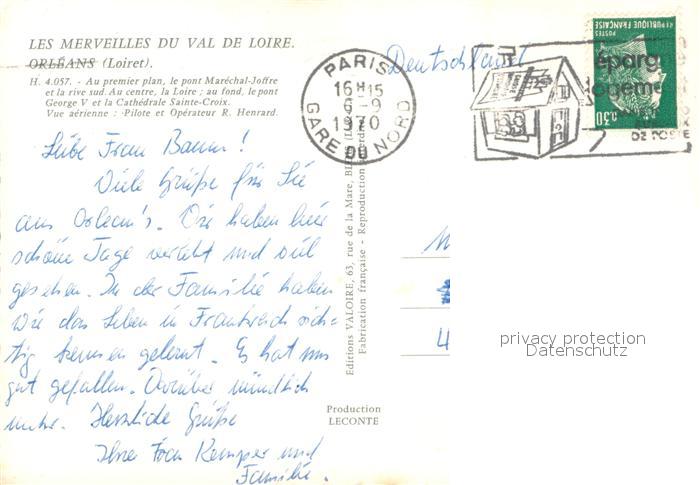 LES MERVEILLES DU VAL DE LOIRE.
ORLÉANS (Loiret).
H. 4.057. - Au premier plan, le pont Maréchal-Joffre
et la rive sud. Au centre, la Loire ; au fond, le pont
George V et la Cathédrale Sainte-Croix.
Vue aérienne : Pilote et Opérateur R. Henrard.
Deutschland
PARIS
16H15
6-9
1970
GARE DU NORD
POSTES
REPUBLIQUE FRANÇAISE
0,30
éparg
logeme
DE POSTE
Liebe Frau Baum !
Viele Grüße für Sie
aus Orlean's. Wir haben hier
schöne Tage verlebt und viel
gesehen. In der Familie haben
wir das Leben in Frankreich rich=
tig kennen gelernt. Es hat uns
gut gefallen. Darüber mündlich
mehr. Herzliche Grüße
Ihre Frau Kemper und
Familie.
Editions VALOIRE, 63, rue de la Mare,
Fabrication française - Reproduction
Production
LECONTE
privacy protection
Datenschutz